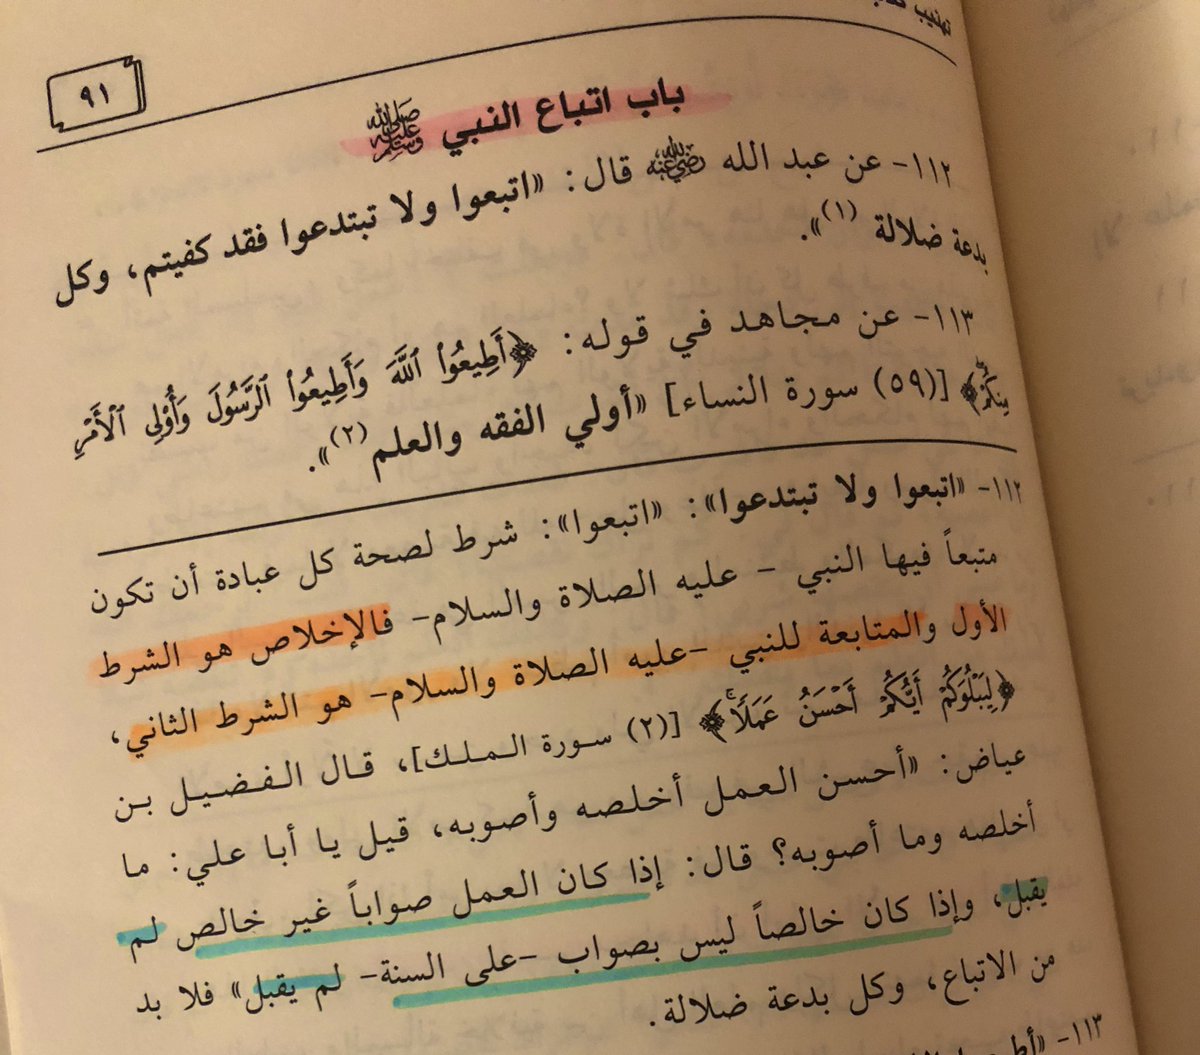 تهذيب
٩١
باب اتباع النبي ﷺ
١١٢- عن عبد الله رضي الله عنه قال: «اتبعوا ولا تبتدعوا فقد كفيتم، وكل
بدعة ضلالة (١)».
١١٣- عن مجاهد في قوله: ﴿أَطِيعُوا۟ ٱللَّهَ وَأَطِيعُوا۟ ٱلرَّسُولَ وَأُو۟لِى ٱلْأَمْرِ
مِنكُمْ﴾ [(٥٩) سورة النساء] «أولي الفقه والعلم(٢)».
١١٢- «اتبعوا ولا تبتدعوا»: «اتبعوا»: شرط لصحة كل عبادة أن تكون
متبعاً فيها النبي - عليه الصلاة والسلام- فالإخلاص هو الشرط
الأول والمتابعة للنبي -عليه الصلاة والسلام- هو الشرط الثاني،
﴿لِيَبْلُوَكُمْ أَيُّكُمْ أَحْسَنُ عَمَلًا﴾ [(٢) سورة الملك]، قال الفضيل بن
عياض: «أحسن العمل أخلصه وأصوبه، قيل يا أبا علي: ما
أخلصه وما أصوبه؟ قال: إذا كان العمل صواباً غير خالص لم
يقبل، وإذا كان خالصاً ليس بصواب -على السنة- لم يقبل» فلا بد
من الاتباع، وكل بدعة ضلالة.
١١٣-